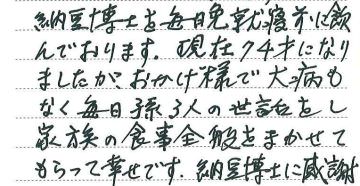 納豆博士を毎日晩就寝前に飲
んでおります。現在74才になり
ましたが、おかげ様で大病も
なく毎日孫3人の世話をし
家族の食事全般をまかせて
もらって幸せです。納豆博士に感謝